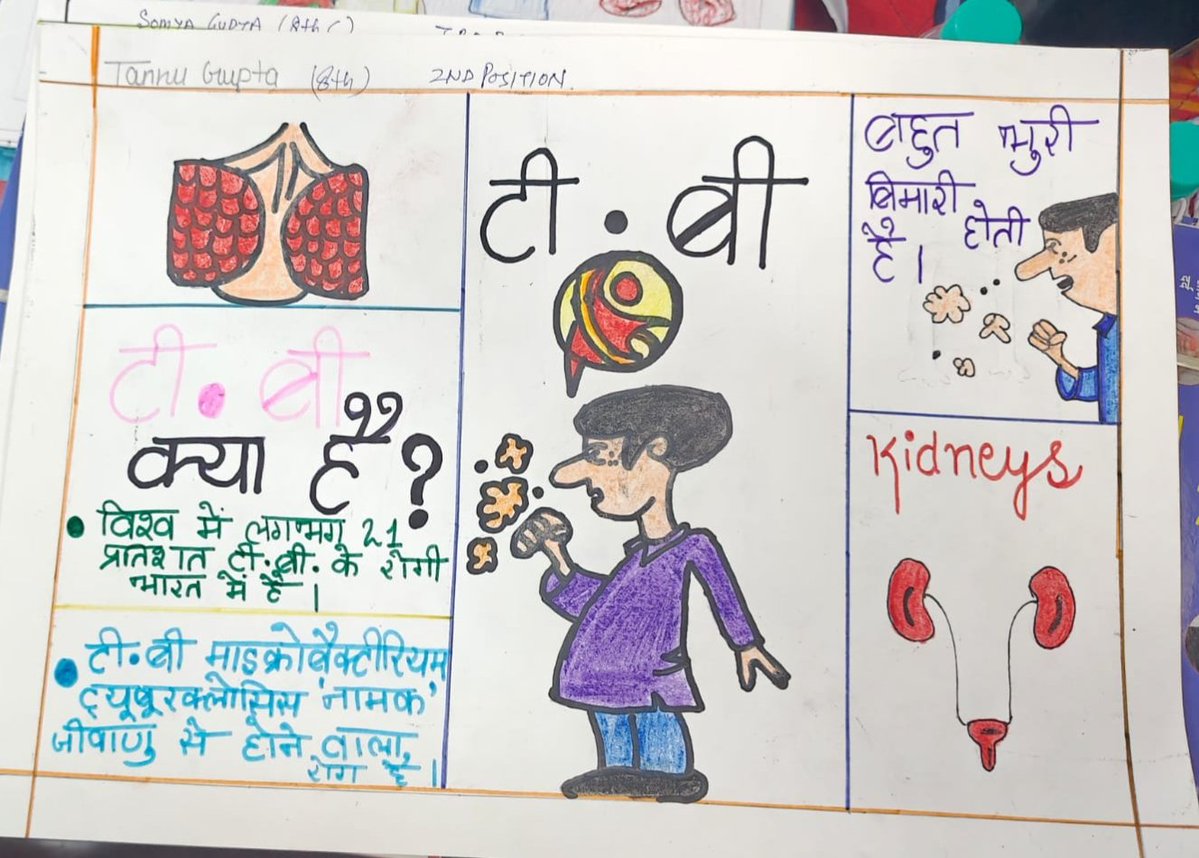 SOMYA GUPTA (8th C)
Tannu Gupta (8th) 2ND POSITION.
टी.बी
क्या है?
• विश्व में लगभग 21
प्रतिशत टी.बी. के रोगी
भारत में है।
• टी.बी माइक्रोबैक्टीरियम
ट्यूबरक्लोसिस 'नामक'
जीवाणु से होने वाला
रोग है।
टी.बी
बहुत भुरी
बिमारी
होती
है।
Kidneys